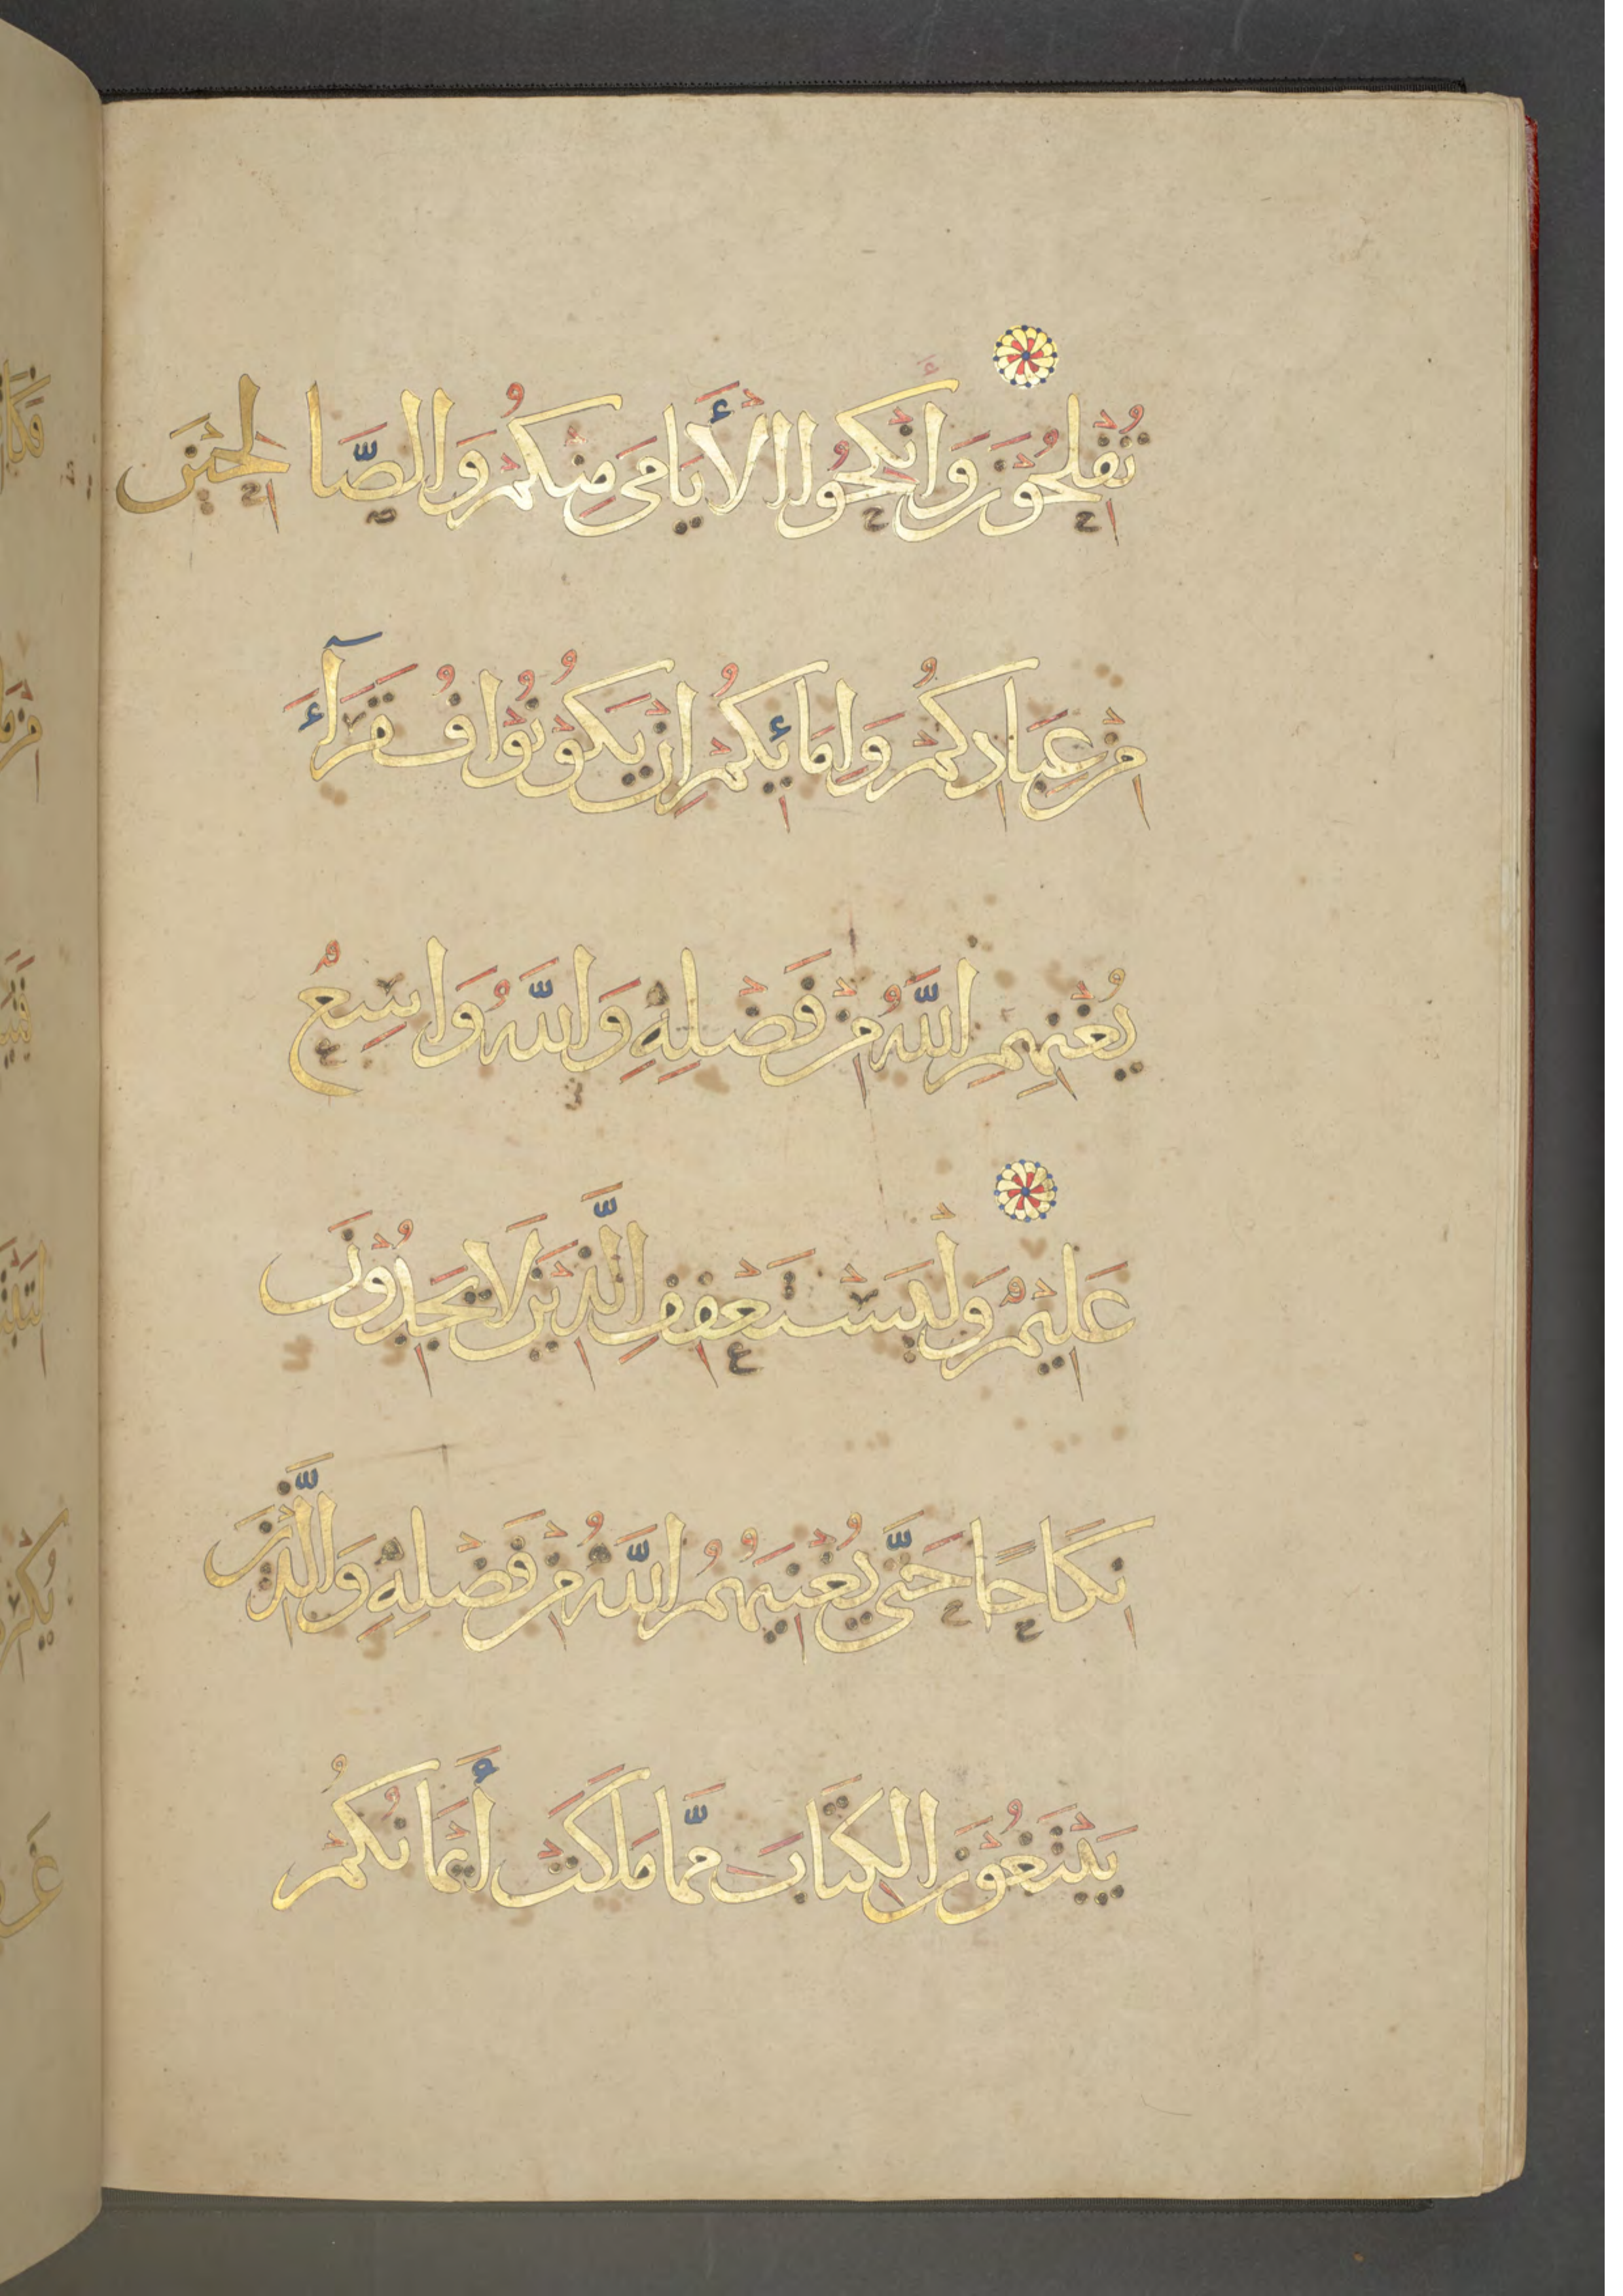 تُفْلِحُوْنَ وَأَنْكِحُوا الْأَيَامَى مِنْكُمْ وَالصَّالِحِيْنَ
مِنْ عِبَادِكُمْ وَإِمَائِكُمْ إِنْ يَكُوْنُوْا فُقَرَآءَ
يُغْنِهِمِ اللَّهُ مِنْ فَضْلِهِ وَاللَّهُ وَاسِعٌ
عَلِيْمٌ وَلْيَسْتَعْفِفِ الَّذِيْنَ لَا يَجِدُوْنَ
نِكَاحًا حَتَّى يُغْنِيَهُمُ اللَّهُ مِنْ فَضْلِهِ وَالَّذِيْنَ
يَبْتَغُوْنَ الْكِتَابَ مِمَّا مَلَكَتْ أَيْمَانُكُمْ